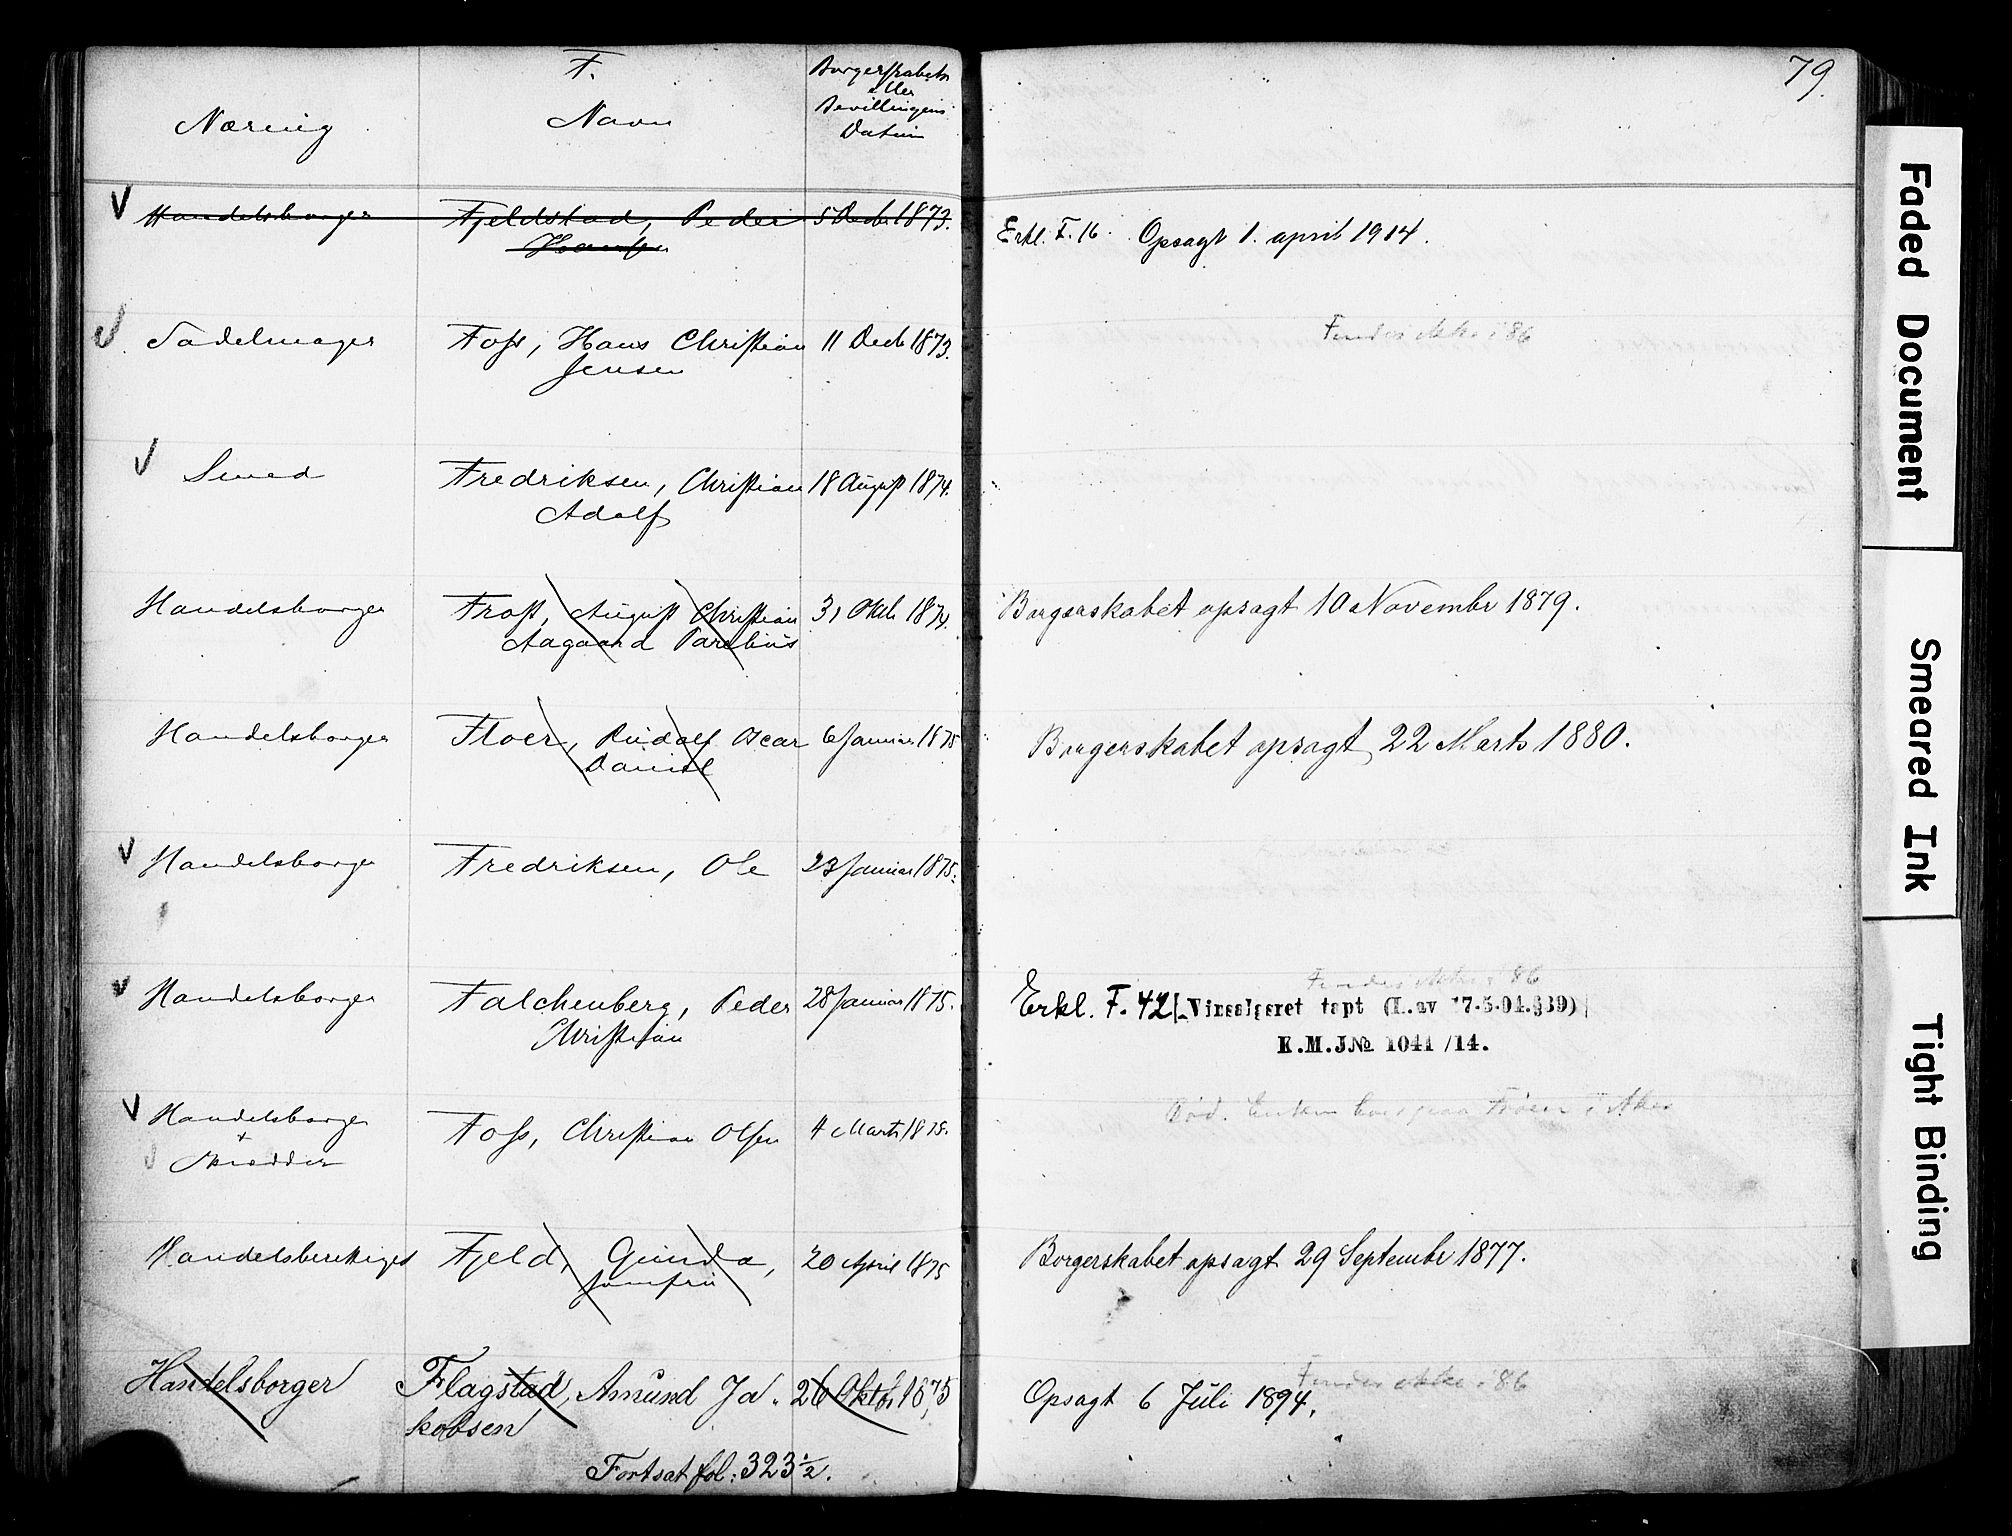 F.
79.
Næring
Navn
Borgerskabets
eller
Bevillingens
Datum
Handelsborger Fjeldstad, Peder 5 Decbr 1873. Erkl. F. 16. Opsagt 1. april 1914.
Hansen
Sadelmager Foss, Hans Christian 11 Decb 1873. Findes ikke i 86
Jensen
Smed Fredriksen, Christian 18 August 1874.
Adolf
Handelsborger Frost, August Christian 31 Oktb 1874. Borgerskabet opsagt 10 Novembr 1879.
Aagaard Parelius
Handelsborger Floer, Rudolf Oscar 6 Januar 1875 Borgerskabet opsagt 22 Marts 1880.
Daniel
Handelsborger Fredriksen, Ole 23 Januar 1875.
Findes ikke i 86
Handelsborger Falchenberg, Peder 28 Januar 1875. Erkl. F. 42 Vinsalgsret tapt (L. av 17-5-04.§39)
Christian K.M.J№ 1041/14.
Død. Enken bor paa i Aker
Handelsborger Foss, Christian Olsen 4 Marts 1875.
+
Skrædder
Handelsberettiget Fjeld, Gunda, 20 April 1875 Borgerskabet opsagt 29 Septembr 1877.
Jomfru
Findes ikke i 86
Handelsborger Flagstad, Amund Ja- 26 Oktbr 1875 Opsagt 6 Juli 1894.
kobsen
Fortsat fol: 323 1/2.
Faded Document
Smeared Ink
Tight Binding